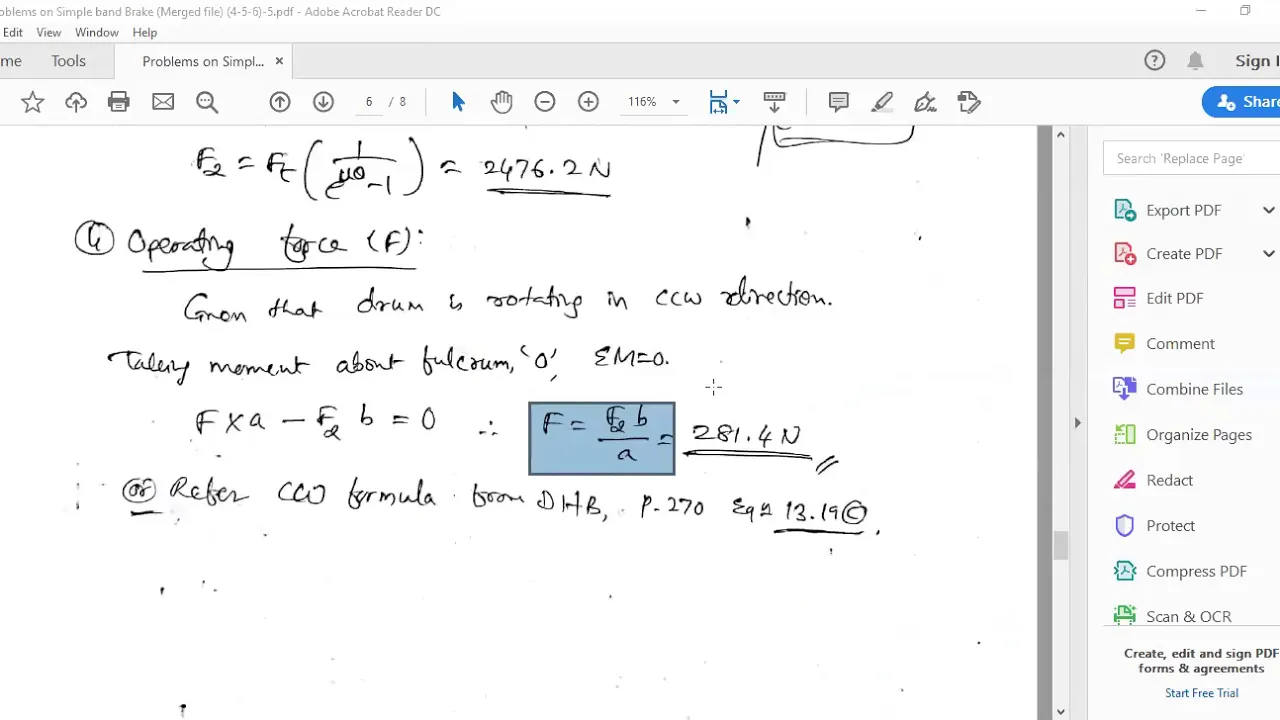 oblems on Simple band Brake (Merged file) (4-5-6)-5.pdf - Adobe Acrobat Reader DC
Edit View Window Help
me Tools Problems on Simpl... × ? Sign I
6 / 8 116% Share
F2 = Ft (1/(e^μθ-1)) = 2476.2 N
④ Operating force (F):
Given that drum is rotating in CCW direction.
Taking moment about fulcrum, 'O', ΣM=0.
F x a - F2 b = 0 ∴ F = F2 b / a = 281.4 N
or Refer CCW formula from DHB, P. 270 Eqn 13.19 C.
Search 'Replace Page'
Export PDF
Create PDF
Edit PDF
Comment
Combine Files
Organize Pages
Redact
Protect
Compress PDF
Scan & OCR
Create, edit and sign PDF
forms & agreements
Start Free Trial